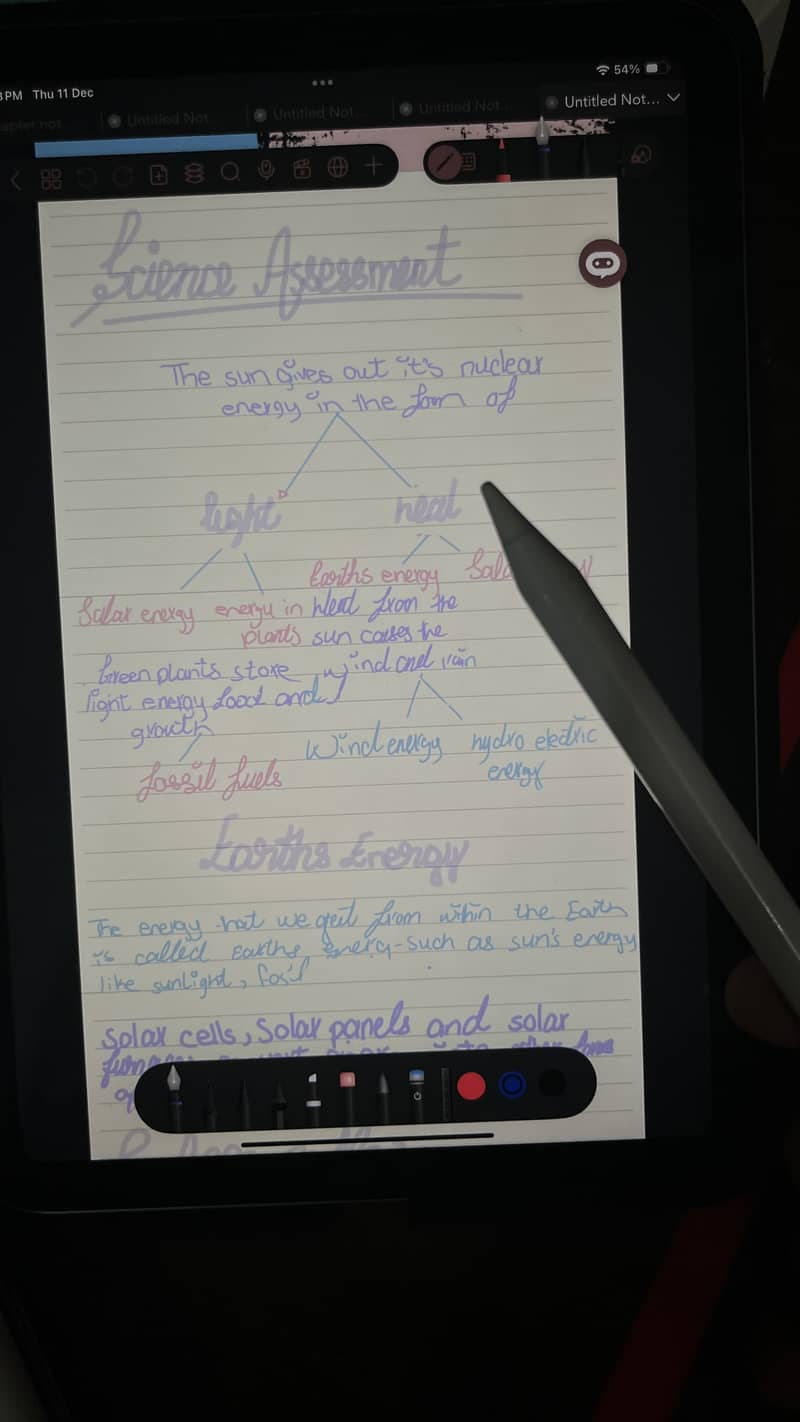 PM Thu 11 Dec
54%
Untitled Not...
Untitled Not...
Untitled Not...
Untitled Not...
Science Assessment
The sun gives out it's nuclear
energy in the form of
light heat
Earths energy
Solar energy energy in Heat from the
plants sun causes the
Green plants store wind and rain
light energy food and
growth
Wind energy hydro electric
energy
fossil fuels
Earths Energy
The energy that we get from within the Earth
is called Earths energy-such as sun's energy
like sunlight, fosil
Solar cells, Solar panels and solar